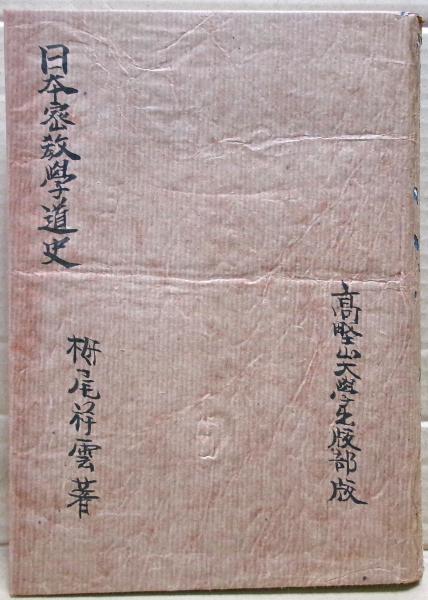 日本密教學道史
栂尾祥雲著
高野山大學出版部版